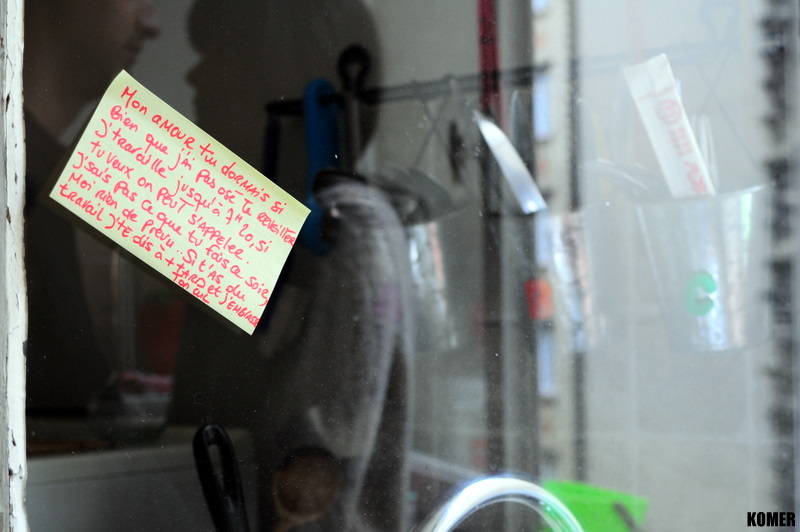 Mon aMOUR tu dORMAis si
Bien que j'Ai PAS OSE TE REVEILLER
j'travaille jusqu'à 7H20, si
tu veux on PEUT S'APPELER.
j'sais PAS ce que tu fais ce soir,
Moi rien de PRÉVU. Si t'As du
travail j'te dis à + TARD et j'EMBRASSE
ton cul
KOMER